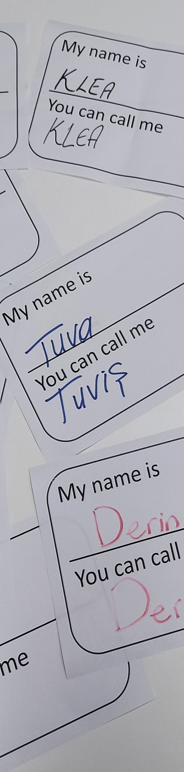 My name is
KLEA
You can call me
KLEA
My name is
Tuva
You can call me
Tuviş
My name is
Derin
You can call
Der
me